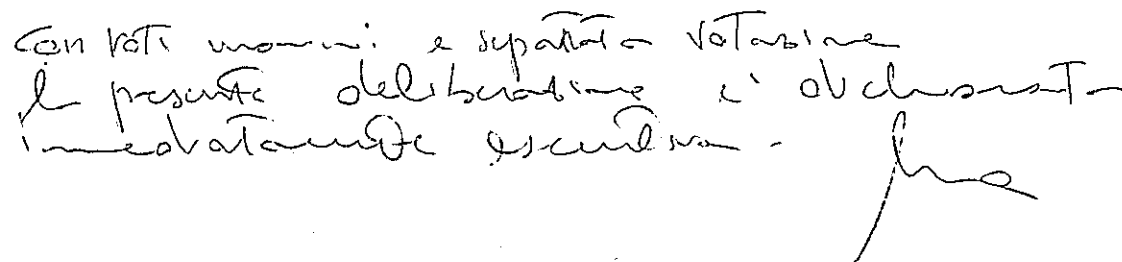 Con voti unanimi e separata votazione
la presente deliberazione è dichiarata
immediatamente esecutiva.